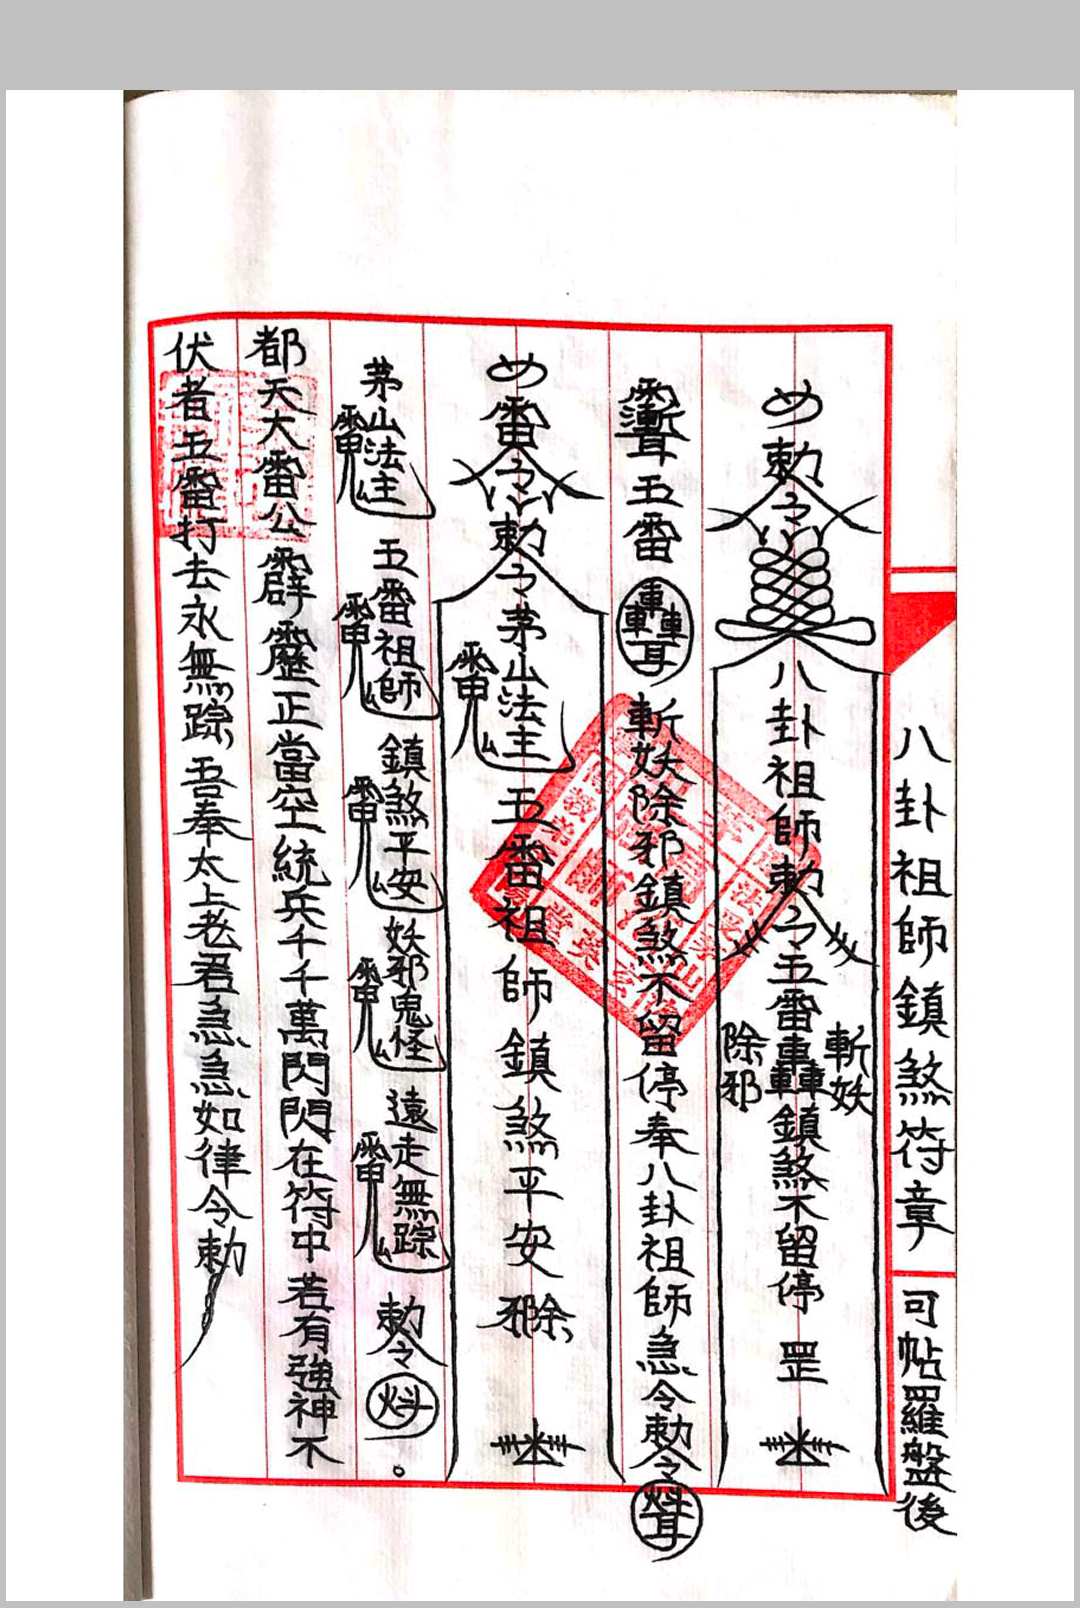 八卦祖師鎮煞符章 可帖羅盤後
勅令
八卦祖師勅令五雷轟鎮煞不留停 罡
斬妖
除邪
五雷
斬妖除邪鎮煞不留停奉八卦祖師急令勅令
雷令勅令茅山法主五雷祖師鎮煞平安
茅山法主 五雷祖師 鎮煞平安 妖邪鬼怪 遠走無踪 勅令
都天大雷公霹靂正當空統兵千千萬閃閃在符中若有強神不
伏者五雷打去永無踪吾奉太上老君急急如律令勅